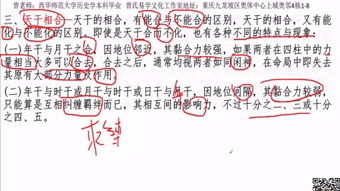 曾老师：西华师范大学历史学本科毕业 曾氏易学文化工作室地址：重庆九龙坡区奥体中心上城奥邻4栋1-8
三、天干相合——天干的相合，有能合与不能合的区别，天干的相合，又有能
化与不能化的区别。即使是天干合而不化，也有各种不同的特点与现象：
(一)年干与月干之合，因地位邻近，其黏合力较强，如果两者在四柱中的力
量相当大多可以合去，合去之后，通常均视两者如同闲神，在命局中即失去
其原有大部分力量及作用
(二)年干与时干或月干与时干或日干与年干，因地位间隔，其黏合力较弱，
只能算是互相纠缠羁绊而已，其相互间的影响力，不过十分之二、三或十分
之四、五。